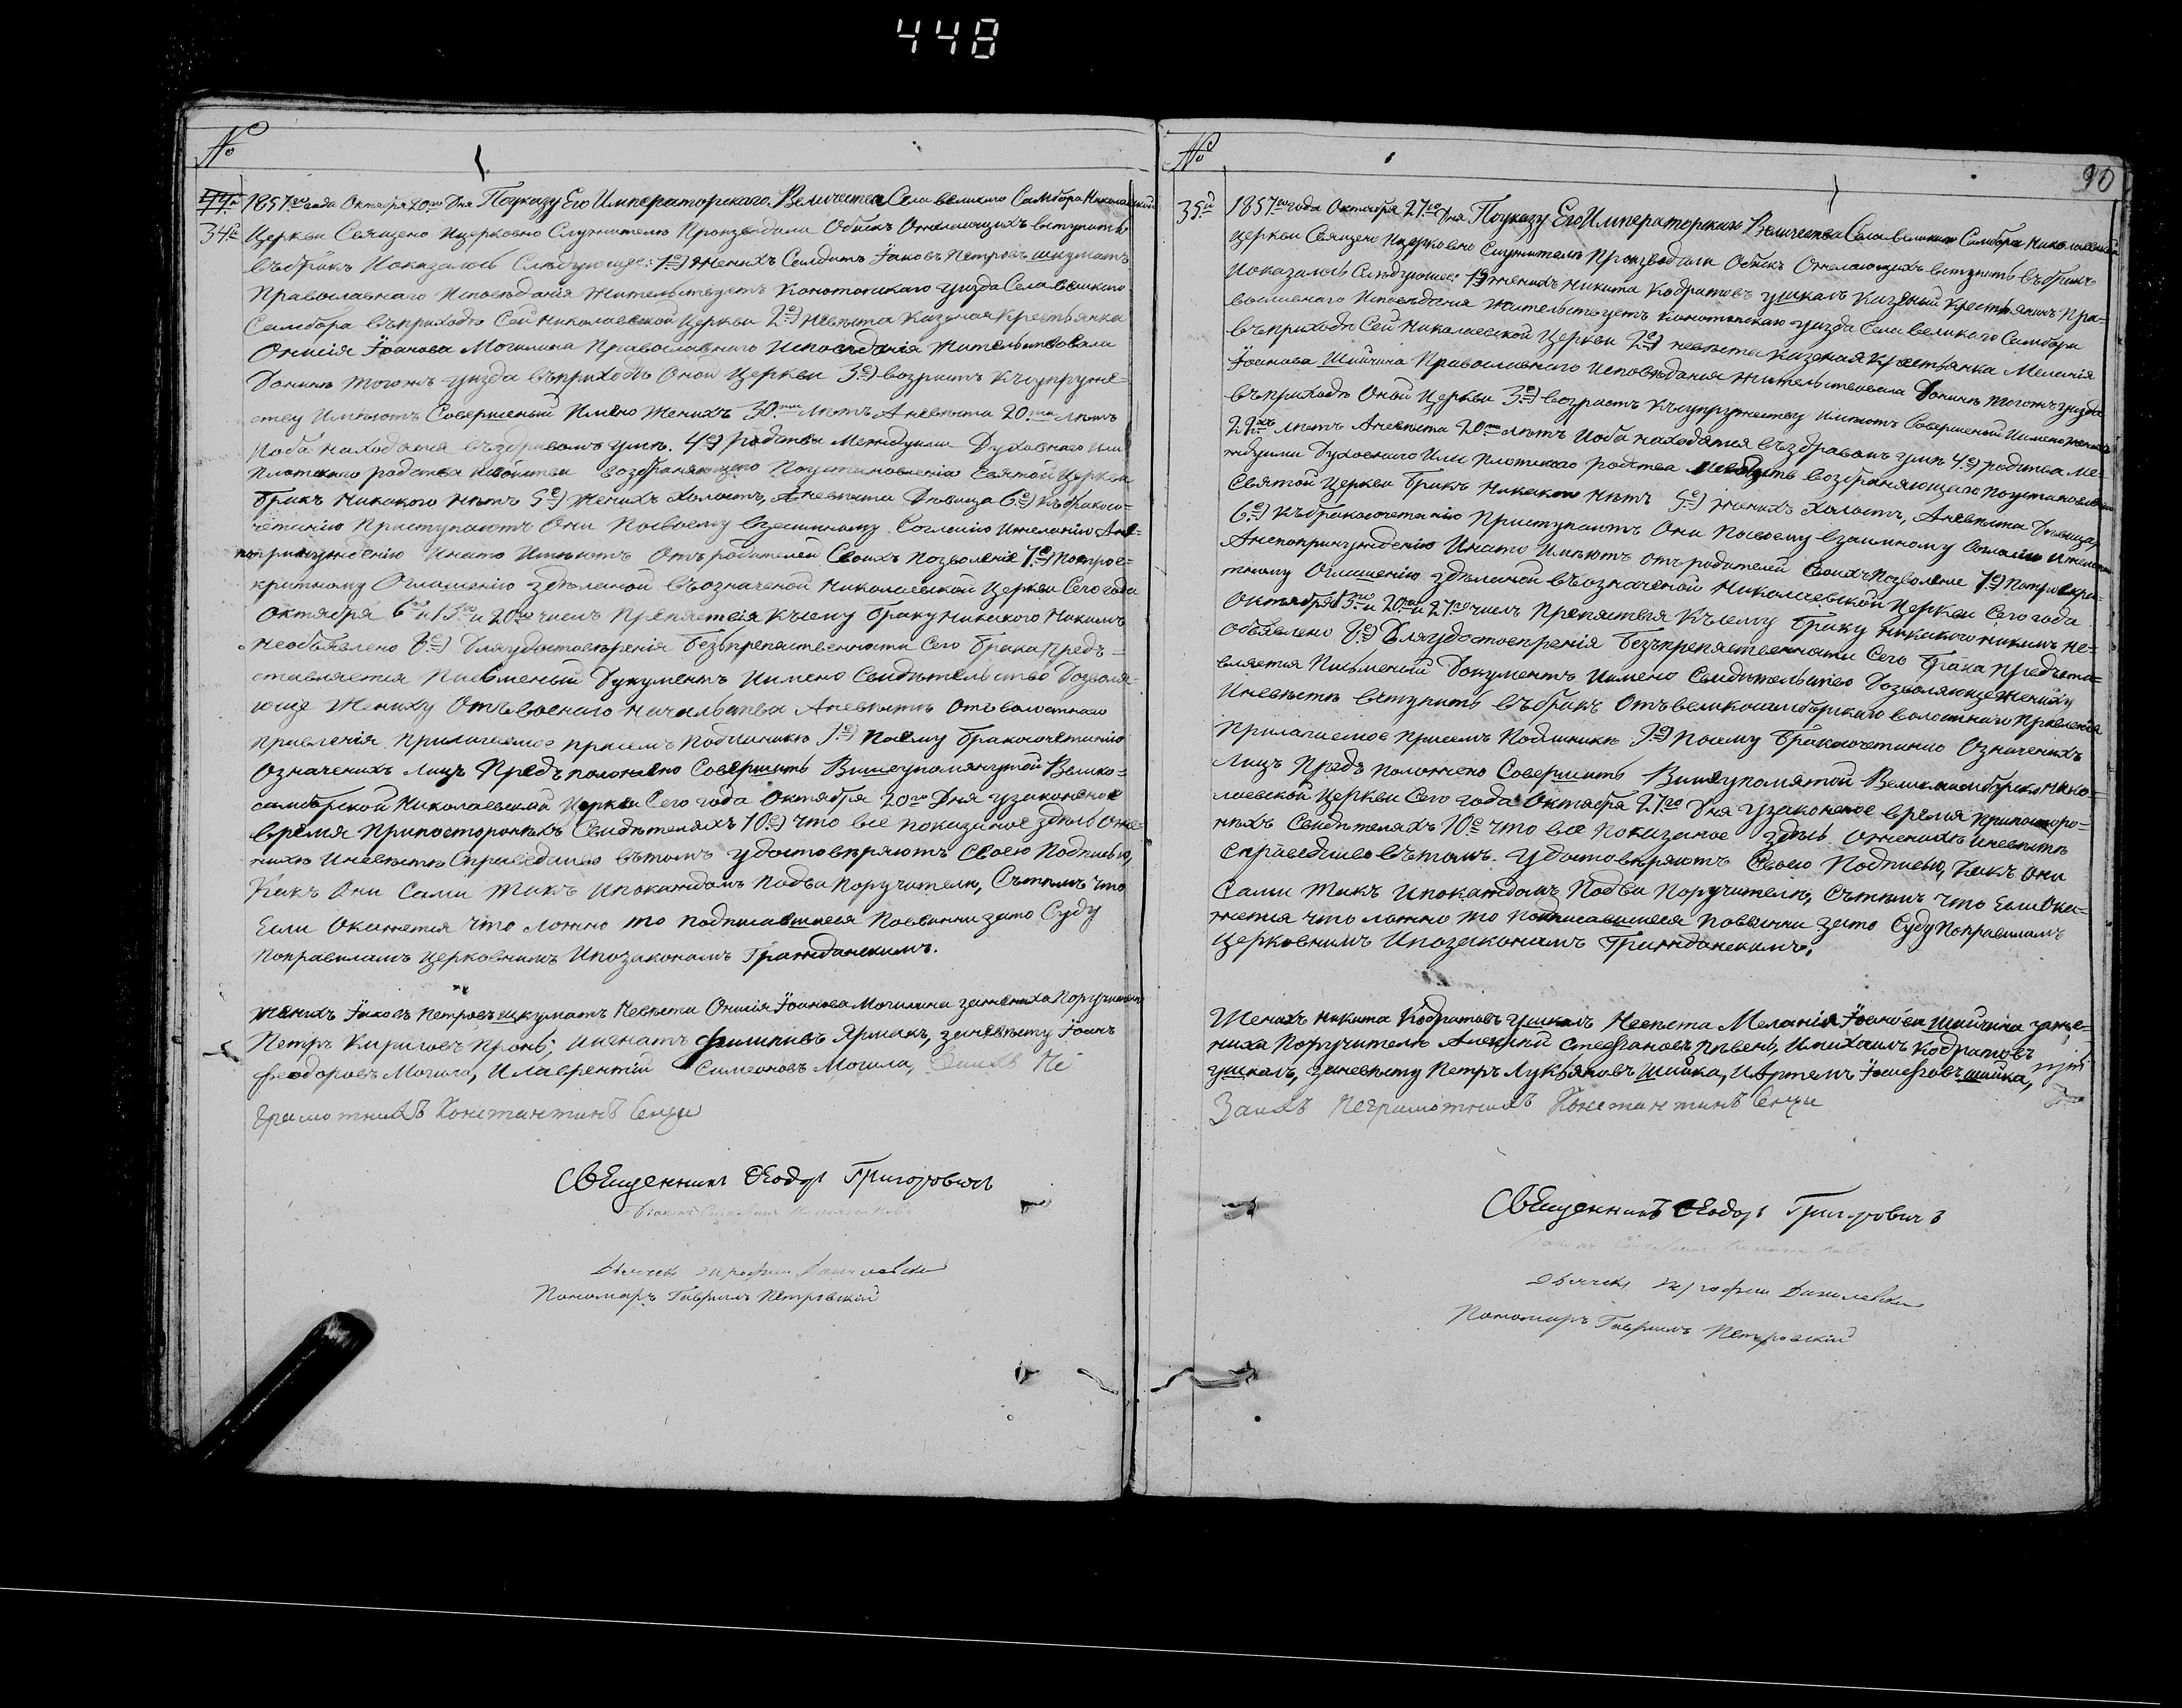 448
№
44й
34й 1857го года Октября 20го Дня По указу Его Императорскаго Величества Села великого Самбора Николаевской
Церкви Священо Ицерковно Служители Производили Обыск Ожелающихъ вступить
въбракъ Иоказалось Следующее: 1е) Женихъ Солдатъ Ӏаковъ Петровъ шкуматъ
Православнаго Исповеданія жительствуетъ Конотопскаго уизда Села великого
Самбора въприходъ Сей Николаевской Церкви 2е) Невеста Казеная Крестьянка
Онисія Ӏоанова Могилина Православного Исповеданія Жительствовала
Донинѣ тогожъ уизда въприходѣ Оной Церкви 3е) возрастъ Къ супруже-
ству Имѣютъ Совершеный Имено Женихъ 30.ти лѣтъ Аневѣста 20.ти лѣтъ
Иоба находятся въздравомъ умѣ. 4е) родства Междуими Духовнаго или
Плотского родства возбраняющаго Поустановленію Святой Церкви
бракъ Никакого Нѣтъ 5е) Женихъ Холостъ, Аневѣста Дѣвица 6е) Къбракосо-
четанію Приступаютъ Они Посвоему взаимному Согласію Ижеланію Ане-
попринужденію Инато Имѣютъ Отъ родителей Своихъ Позволеніе 7е) Потрое-
кратному Оглашенію здѣланой въозначеной Николаевской Церкви Сего года
Октября 6го и 13го и 20го числъ Препятствія Къ сему браку Никакого Никимъ
необъявлено 8е) Для удостовѣренія безъпрепятственности Сего брака Предъ-
ставляется Писменый Документъ Имено Свидѣтельство Дозволя-
юще Жениху Отъвоенаго начальства Аневѣстѣ Отъ волостнаго
правленія Прилагаемое присемъ Подлиникѣ 9е) Посему бракосочетанію
Означеныхъ лицъ Предъположено Совершить Вишеупомянутой Велико-
самборской Николаевской Церкви Сего года Октября 20го Дня узаконеное
время Припосторонихъ Свидѣтеляхъ 10е) что все показаное здѣсь Оже-
нихѣ Иневѣстѣ Справедливо въ томъ удостовѣряютъ Своею Подписью,
Какъ Они Сами такъ Ипокаждомъ Подва Поручителя, Съ тѣмъ что
Если Окажется что ложно то подписавшиеся Повинни зато Суду
Поправиламъ Церковнимъ Ипозаконамъ Гражданскимъ.
Женихъ Ӏаковъ Петровъ шкуматъ Невѣста Онисія Ӏоанова Могилина зажениха Поручители
Петръ Кириловъ Пронь, Игнатъ Филиповъ Ярмакъ, заневѣсту Ӏоанъ
Феодоровъ Могила, Илаврентій Симеоновъ Могила, Заихъ Не
Грамотнихъ Константинъ Сенци
Священникъ Ѳеодоръ Григоровичъ
Дьячекъ Данилевски
Пономаръ Гавриилъ Петровскій
90
№
35й 1857го года Октября 27го Дня По указу Его Императорскаго Величества Села великого Самбора Николаевской
Церкви Священо Ицерковно Служители Производили Обыск Ожелающихъ вступить въбракъ
Иоказалось Следующее: 1е) женихъ Никита Кодратовъ ушкалъ Казеный Крестьянинъ Пра-
вославнаго Исповѣданія жительствуетъ Конотопскаго уизда Села великого Самбора
въприходѣ Сей Николаевской Церкви 2е) невѣста Казеная Крестьянка Меланія
Ӏоанова Шийчина Православного Исповѣданія Жительствовала Донинѣ тогожъ уизда
въприходѣ Оной Церкви 3е) возрастъ Къ супружеству Имѣютъ Совершеный Имено Женихъ
22хъ лѣтъ Аневѣста 20ти лѣтъ Иоба находятся въздравомъ умѣ 4е) родства Ме-
ждуими Духовнаго Или плотского родства возбраняющаго Поустановленію
Святой Церкви бракъ Никакого Нѣтъ 5е) женихъ Холостъ, Аневѣста Дѣвица,
6е) Къбракосочетанію Приступаютъ Они Посвоему взаимному Согласію Ижеланію
Анепопринужденію Инато Имѣютъ Отъ родителей Своихъ Позволеніе 7е) Потроекра-
тному Оглашенію здѣланой въозначеной Николаевской Церкви Сего года
Октября 13го и 20го и 27го числъ Препятствія Къ сему браку Никакого никимъ не-
объявлено 8е) Для удостовѣренія безъпрепятственности Сего брака Предъста-
вляется Писменый Документъ Имено Свидѣтельство Дозволяюще Жениху
Иневѣстѣ вступить въбракъ Отъ великосамборскаго волостнаго Правленія
Прилагаемое присемъ Подлиникѣ 9е) Посему бракосочетанію Означеныхъ
лицъ Предъположено Совершить Вишеупомятой Великосамборско Нико-
лаевской Церкви Сего года Октября 27го Дня узаконеное время Припосторо-
нихъ Свидѣтеляхъ 10е что все показаное здѣсь Оженихѣ Иневѣстѣ
Справедливо въ томъ удостовѣряютъ Своею Подписью, Какъ Они
Сами такъ Ипокаждомъ Подва Поручителя, Съ тѣмъ что Если Ока-
жется что ложно то подписавшиеся повинни зато Суду Поправиламъ
Церковнимъ Ипозаконамъ Гражданскимъ.
Женихъ Никита Кодратовъ Ушкалъ Невѣста Меланія Ӏоанова Шийчина заже-
ниха Поручители Алексѣй Стефановъ Пивень, Имихаилъ Кодратовъ
ушкалъ, заневѣсту Петръ Лукьяновъ Шийка, Иартемъ Ӏосифовъ шийка,
Заихъ Неграмотнихъ Константинъ Сенци
Священникъ Ѳеодоръ Григоровичъ
Дьячекъ Данилевски
Пономаръ Гавриилъ Петровскій